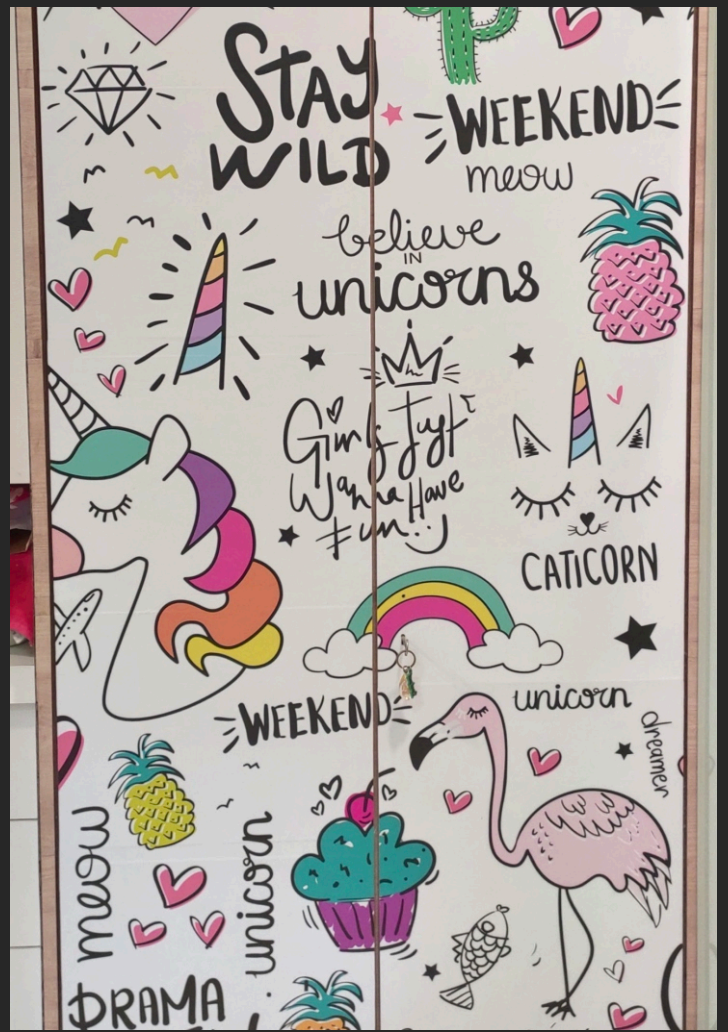 STAY
WILD
WEEKEND
meow
believe
IN
unicorns
Girls Just
Wanna Have
Fun..
CATICORN
WEEKEND
unicorn
dreamer
meow
unicorn
DRAMA